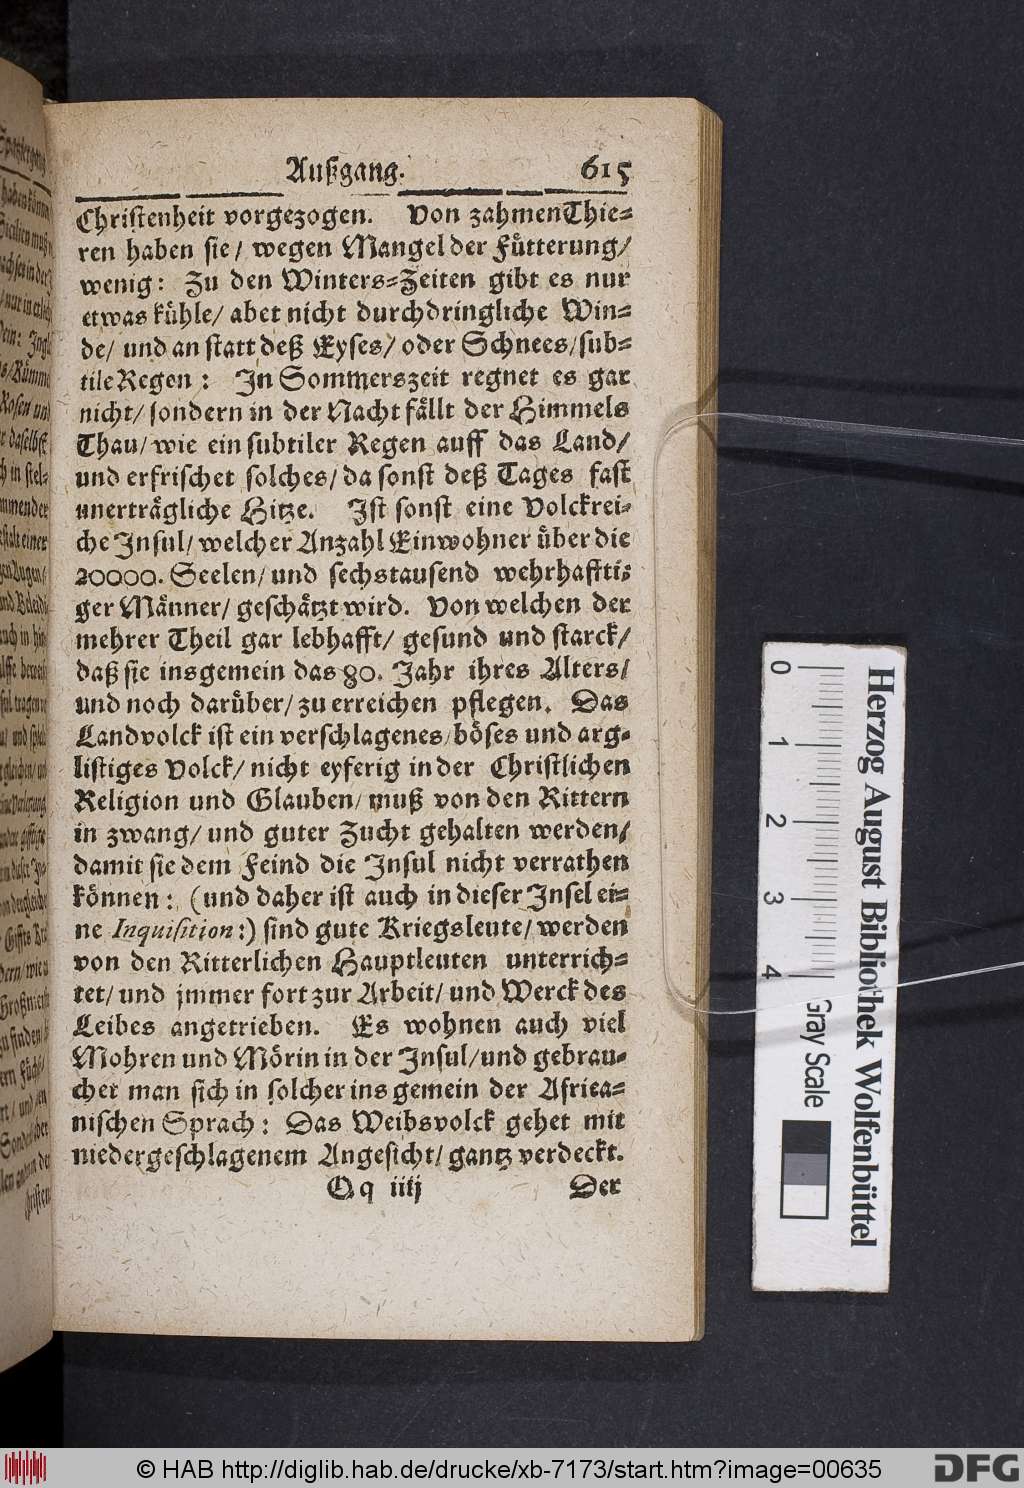 Außgang. 615
Christenheit vorgezogen. Von zahmen Thie-
ren haben sie/ wegen Mangel der Fütterung/
wenig: Zu den Winters-Zeiten gibt es nur
etwas kühle/ abet nicht durchdringliche Win-
de/ und an statt deß Eyses/ oder Schnees/ sub-
tile Regen: In Sommerszeit regnet es gar
nicht/ sondern in der Nacht fällt der Himmels
Thau/ wie ein subtiler Regen auff das Land/
und erfrischet solches/ da sonst deß Tages fast
unerträgliche Hitze. Ist sonst eine Volckrei-
che Insul/ welcher Anzahl Einwohner über die
20000. Seelen/ und sechstausend wehrhaffti-
ger Männer/ geschätzt wird. Von welchen der
mehrer Theil gar lebhafft/ gesund und starck/
daß sie insgemein das 80. Jahr ihres Alters/
und noch darüber/ zu erreichen pflegen. Das
Landvolck ist ein verschlagenes/ böses und arg-
listiges Volck/ nicht eyferig in der Christlichen
Religion und Glauben/ muß von den Rittern
in zwang/ und guter Zucht gehalten werden/
damit sie dem Feind die Insul nicht verrathen
können: (und daher ist auch in dieser Insel ei-
ne Inquisition:) sind gute Kriegsleute/ werden
von den Ritterlichen Hauptleuten unterrich-
tet/ und jmmer fort zur Arbeit/ und Werck des
Leibes angetrieben. Es wohnen auch viel
Mohren und Mörin in der Insul/ und gebrau-
chet man sich in solcher ins gemein der Africa-
nischen Sprach: Das Weibsvolck gehet mit
niedergeschlagenem Angesicht/ gantz verdeckt.
Qq iiij Der
0 1 2 3 4
Gray Scale
Herzog August Bibliothek Wolfenbüttel
© HAB http://diglib.hab.de/drucke/xb-7173/start.htm?image=00635
DFG